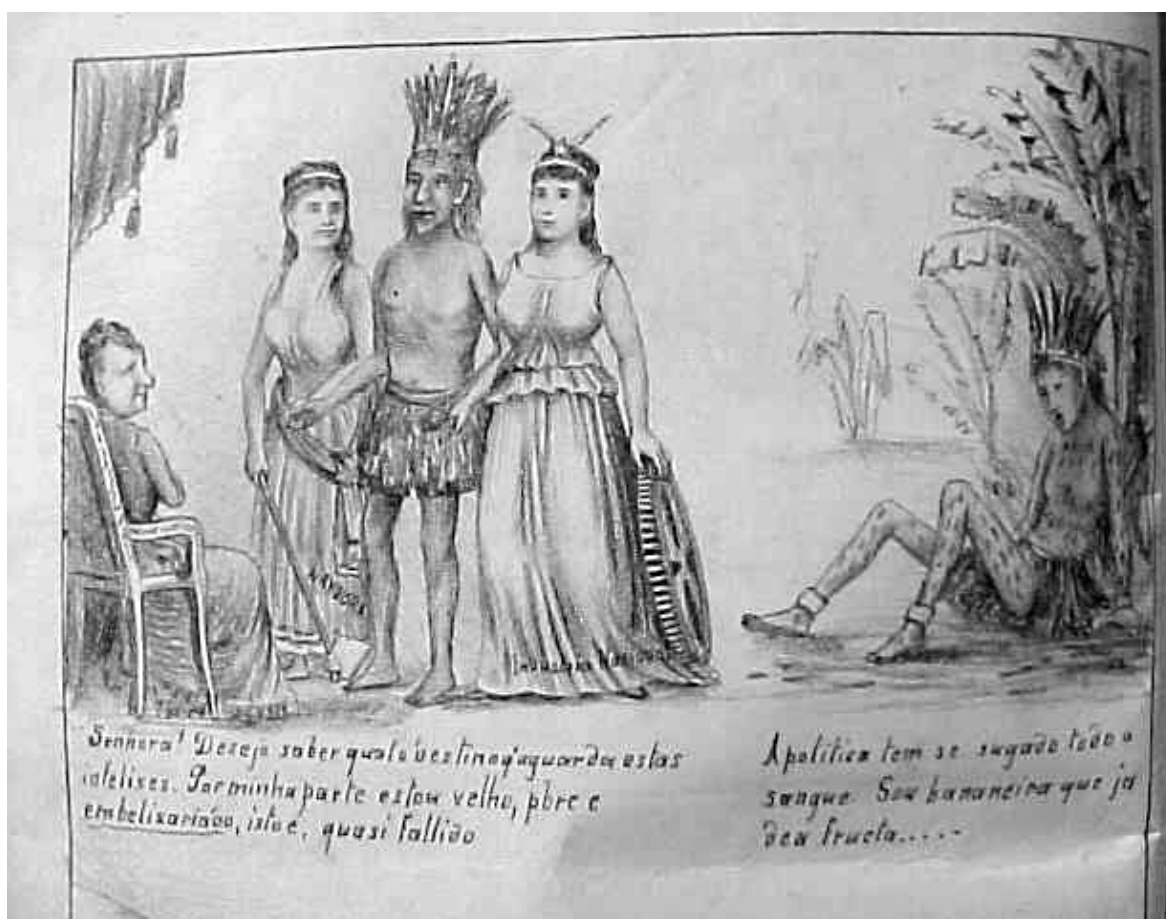 LAVOURA
Industria Nacional
Senhora! Desejo saber qual o destino q'aguarda estas
infelises. Por minha parte estou velho, pbre e
embelixariado, isto é, quasi fallido
A politica tem se sugado todo o
sangue. Sou bananeira que ja
deu fructa.....